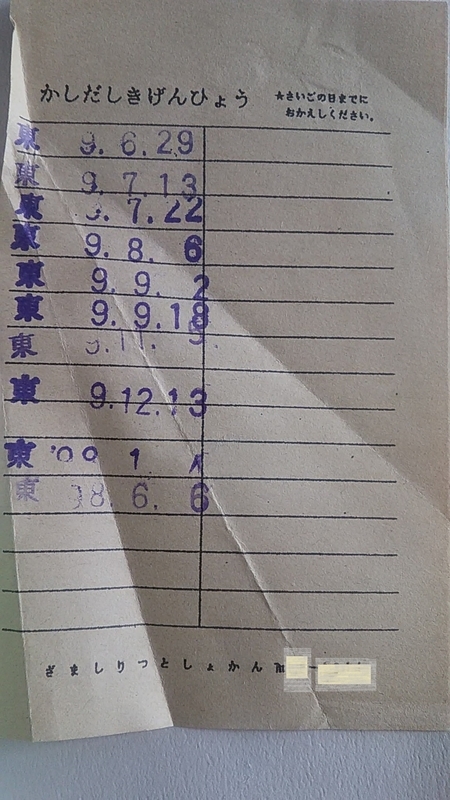 かしだしきげんひょう
★さいごの日までに
おかえしください。
東 9. 6. 29
東 9. 7. 13
東 9. 7. 22
東 9. 8. 6
東 9. 9. 2
東 9. 9. 18
東 9. 11. 9.
東 9. 12. 13
東 '09 1
東 6. 6
ざましりつとしょかん